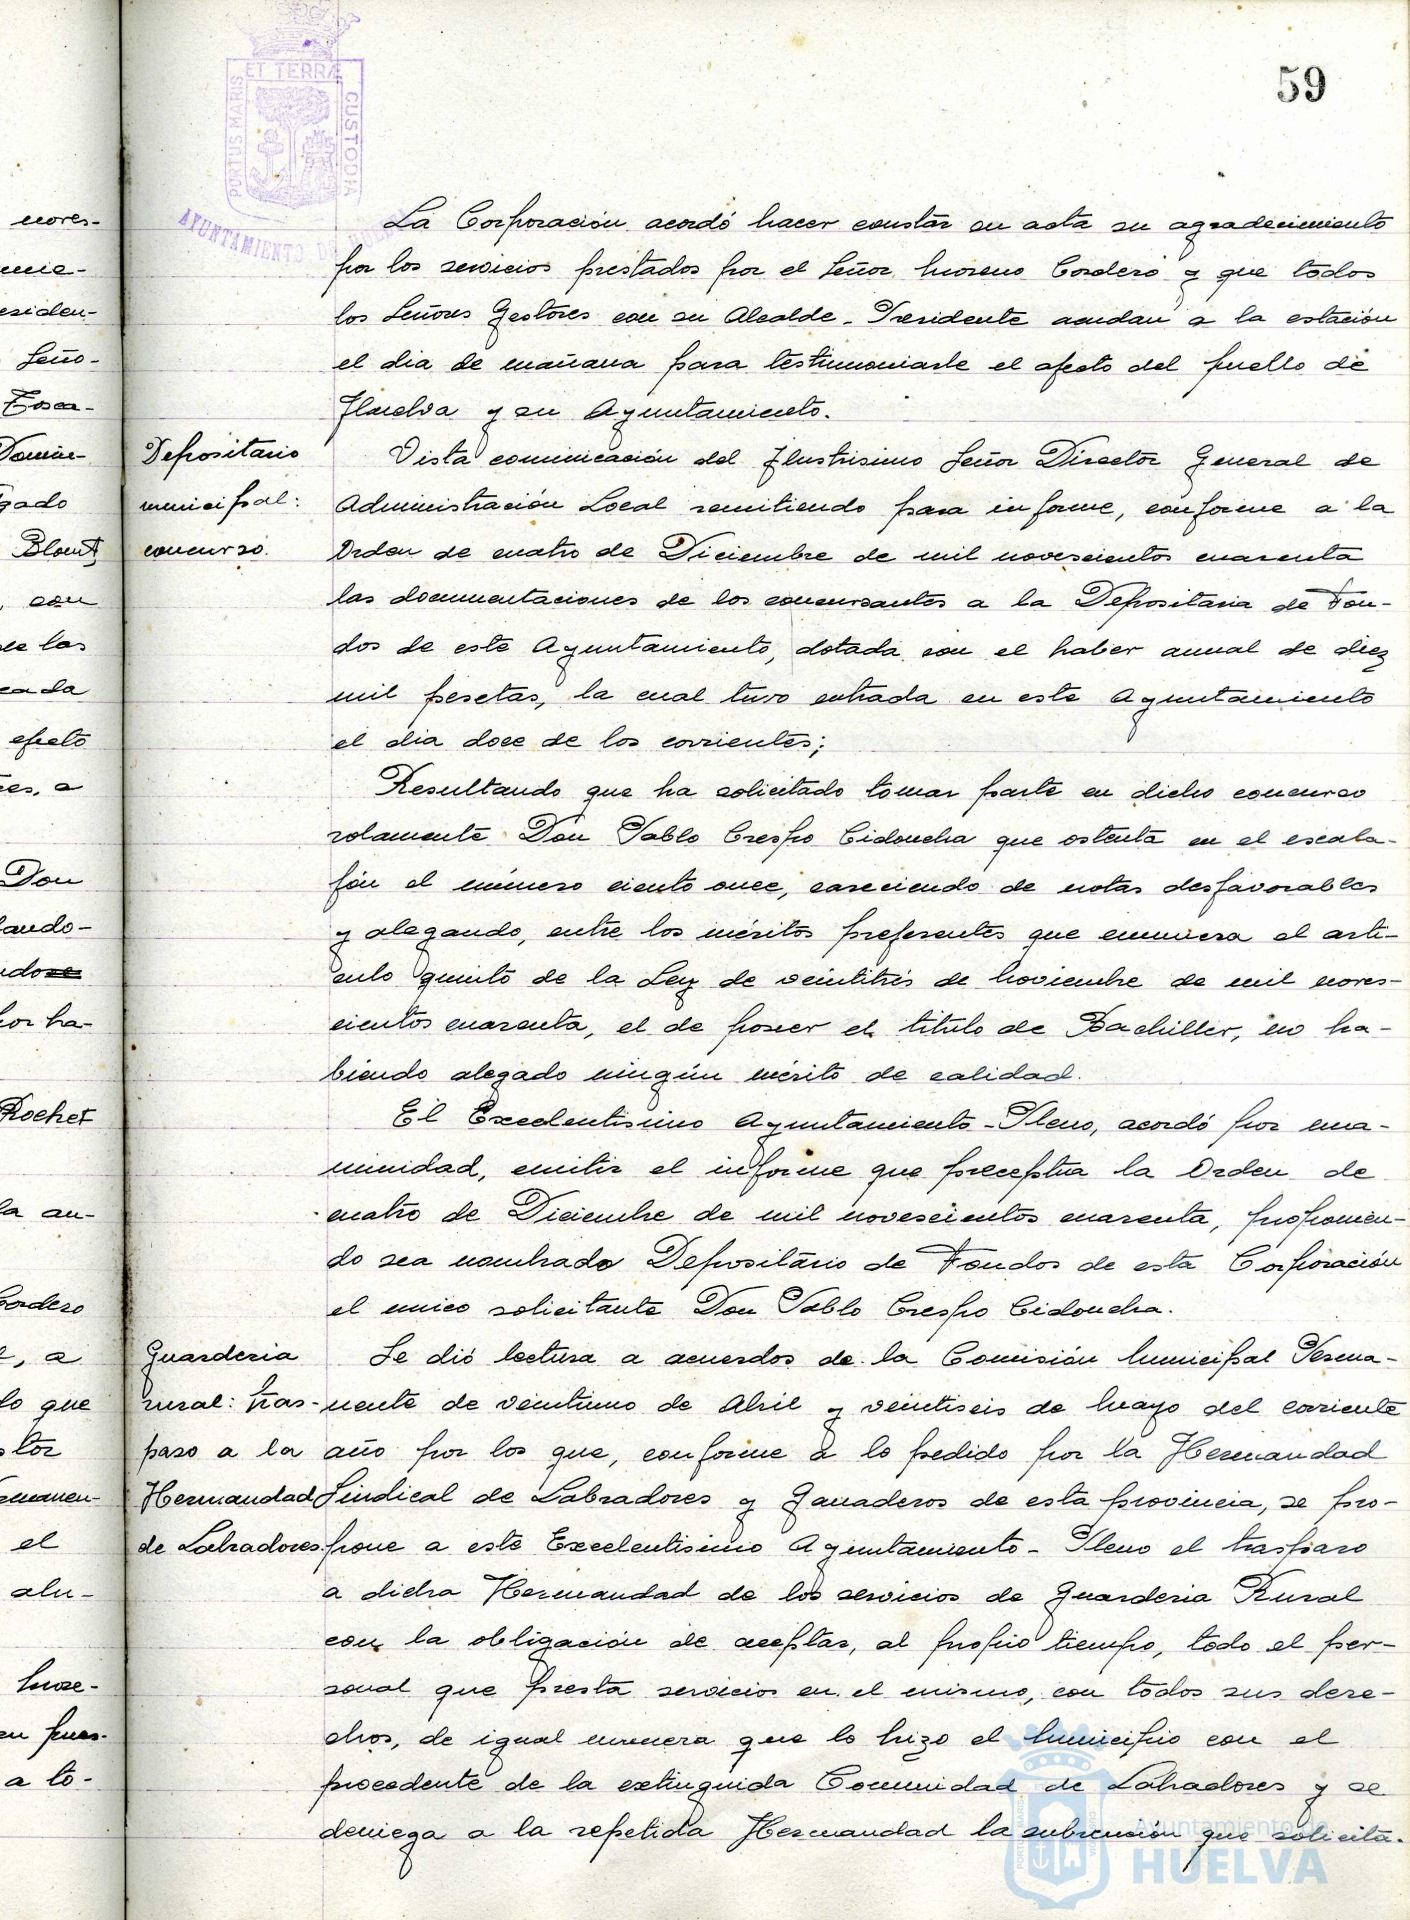 59
ET TERRÆ
PORTUS MARIS
CUSTODIA
AYUNTAMIENTO DE HUELVA
La Corporación acordó hacer constar en acta su agradecimiento
por los servicios prestados por el Señor Moreno Cordero y que todos
los Señores Gestores con su Alcalde-Presidente acudan a la estación
el dia de mañana para testimoniarle el afecto del pueblo de
Huelva y su Ayuntamiento.
Depositario
municipal:
concurso.
Vista comunicación del Ilustrisimo Señor Director General de
Administración Local remitiendo para informe, conforme a la
Orden de cuatro de Diciembre de mil novescientos cuarenta
las documentaciones de los concursantes a la Depositaria de Fon-
dos de este Ayuntamiento, dotada con el haber anual de diez
mil pesetas, la cual tuvo entrada en este Ayuntamiento
el dia doce de los corrientes;
Resultando que ha solicitado tomar parte en dicho concurso
solamente Don Pablo Crespo Cidoncha que ostenta en el escala-
fón el número ciento once, careciendo de notas desfavorables
y alegando, entre los méritos preferentes que enumera el arti-
culo quinto de la Ley de veintitrés de Noviembre de mil noves-
cientos cuarenta, el de poseer el titulo de Bachiller, no ha-
biendo alegado ningún mérito de calidad.
El Excelentisimo Ayuntamiento-Pleno, acordó por una-
nimidad, emitir el informe que preceptua la Orden de
cuatro de Diciembre de mil novescientos cuarenta, proponien-
do sea nombrado Depositario de Fondos de esta Corporación
el unico solicitante Don Pablo Crespo Cidoncha.
Guarderia
rural: tras-
paso a la
Hermandad
de Labradores.
Se dió lectura a acuerdos de la Comisión Municipal Perma-
nente de veintiuno de Abril y veintiseis de Mayo del corriente
año por los que, conforme a lo pedido por la Hermandad
Sindical de Labradores y Ganaderos de esta provincia, se pro-
pone a este Excelentisimo Ayuntamiento-Pleno el traspaso
a dicha Hermandad de los servicios de Guarderia Rural
con la obligación de aceptar, al propio tiempo, todo el per-
sonal que presta servicios en el mismo, con todos sus dere-
chos, de igual manera que lo hizo el Municipio con el
procedente de la extinguida Comunidad de Labradores y se
deniega a la repetida Hermandad la subvención que solicita.
Ayuntamiento de
HUELVA